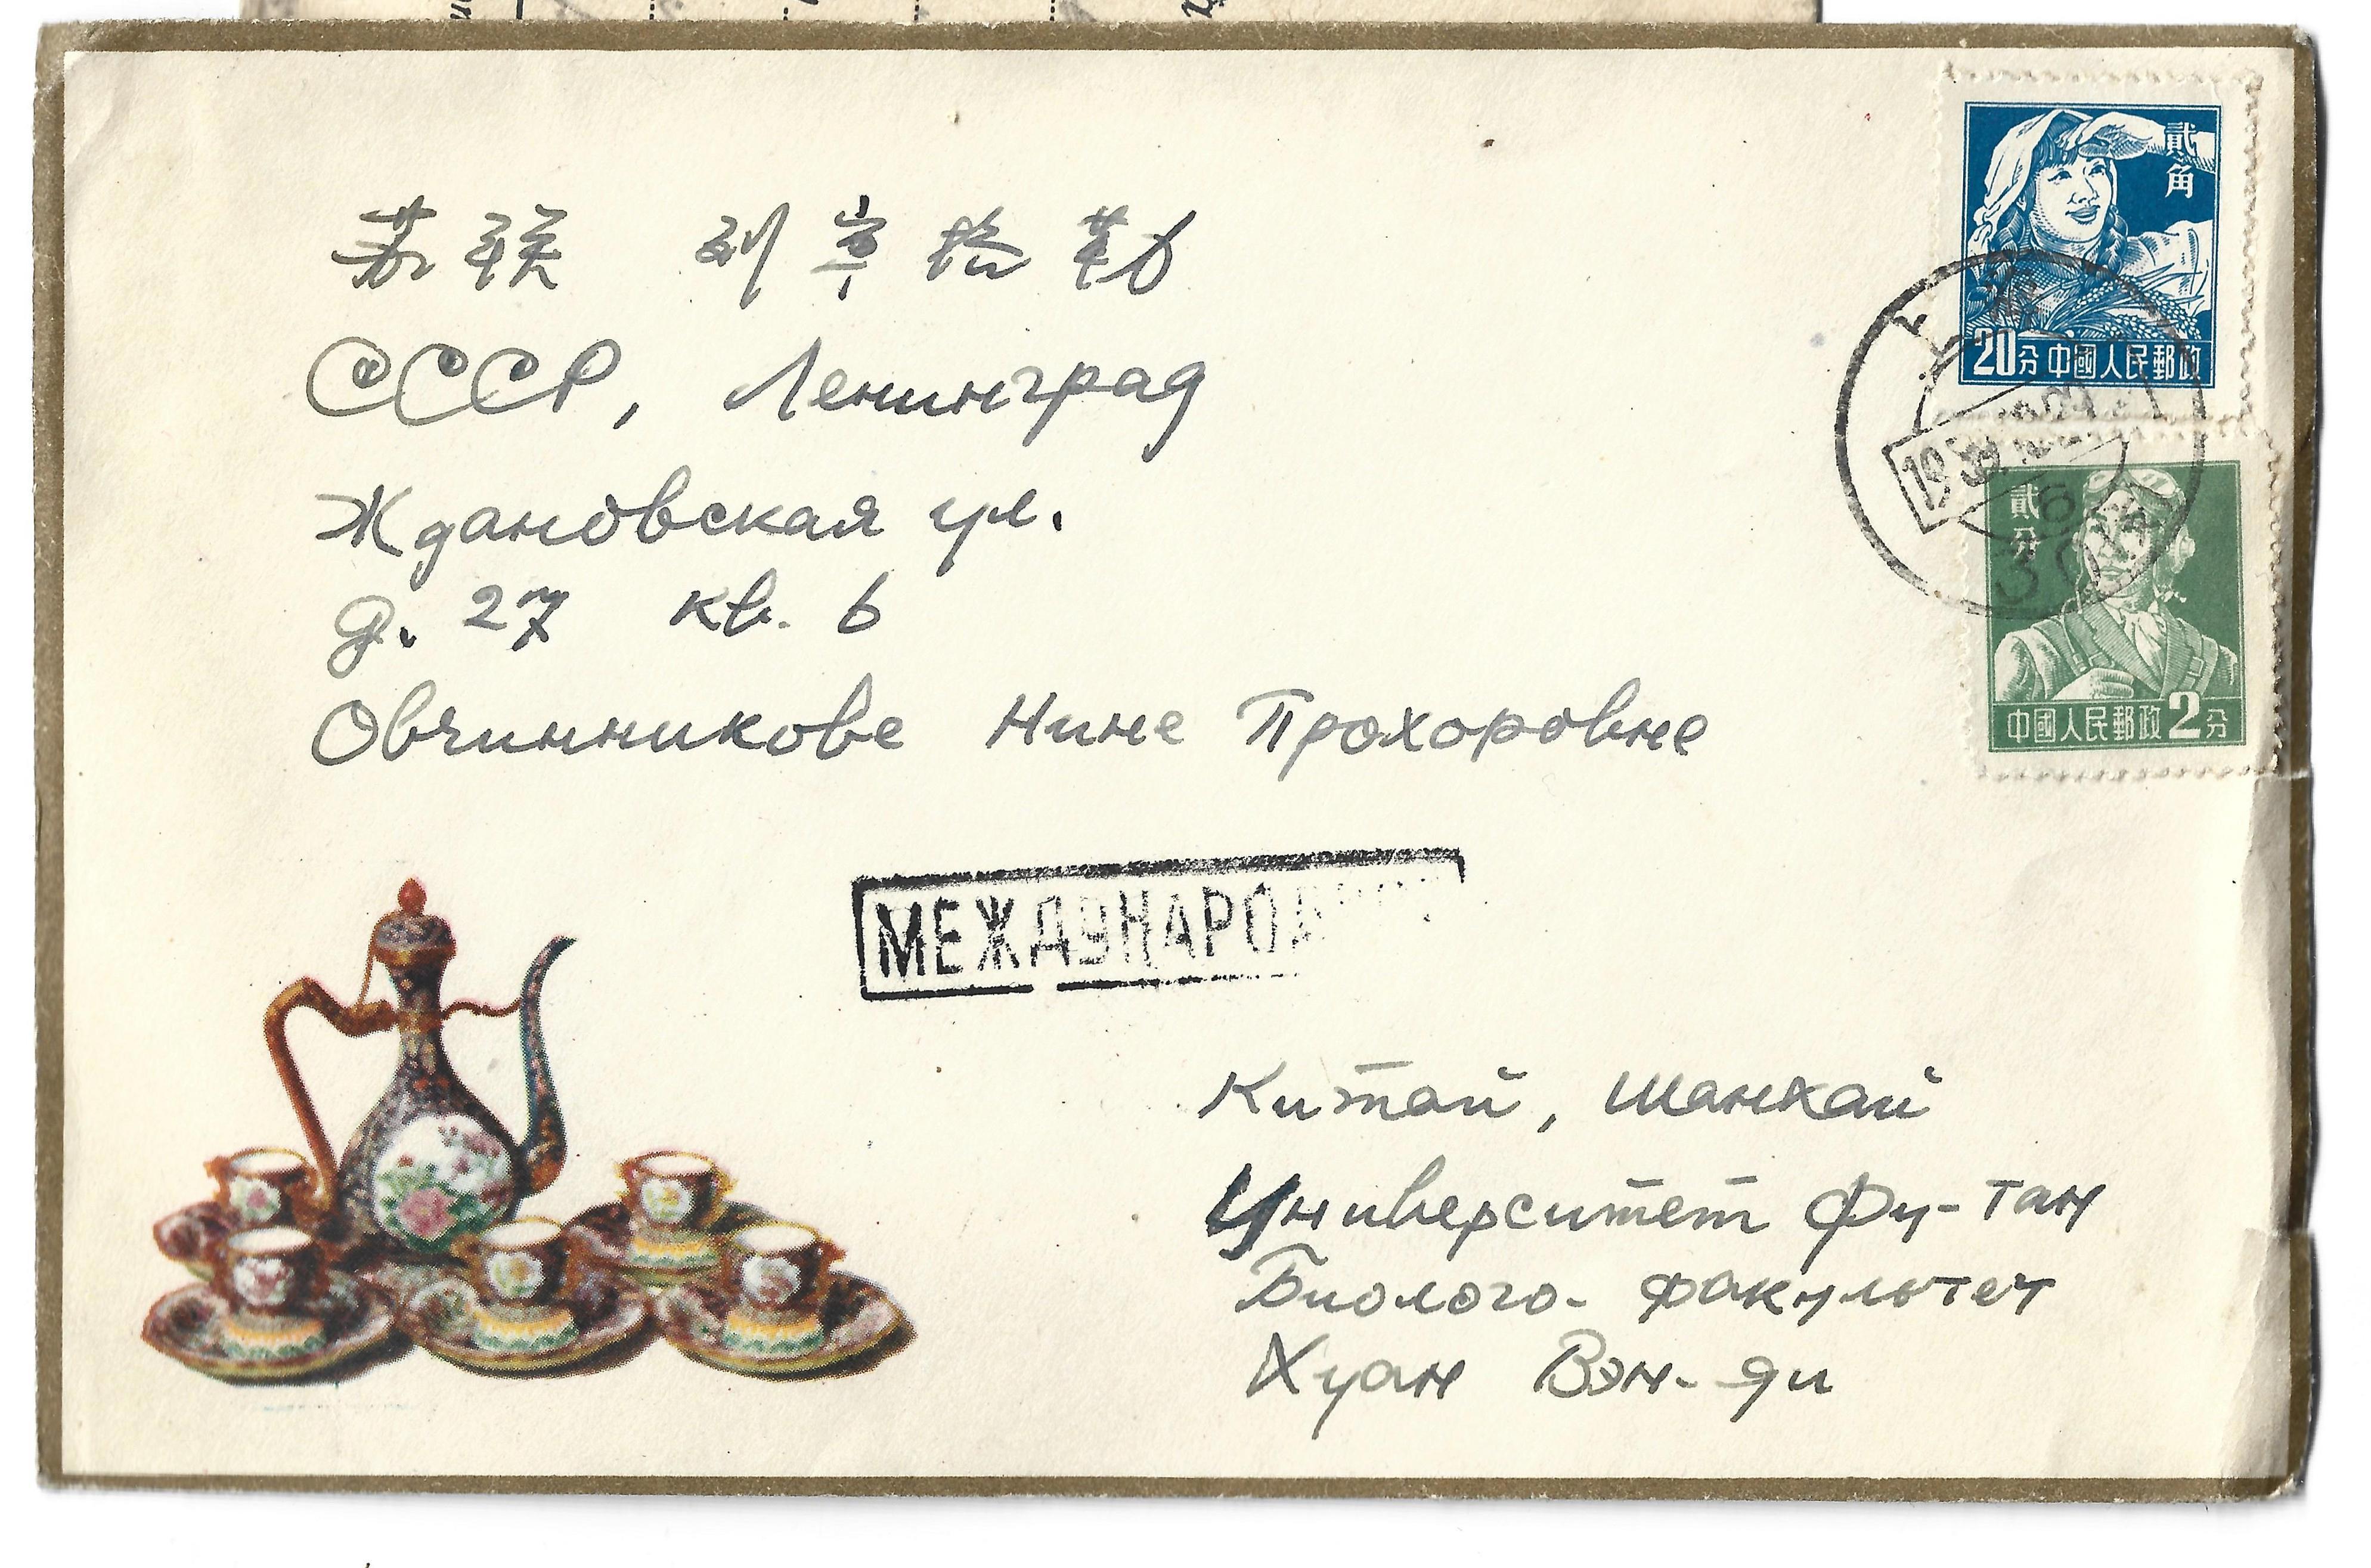 苏联 列宁格勒
СССР, Ленинград
Ждановская ул.
д. 27 кв. 6
Овчинникове Нине Прохоровне
貳角
20分 中國人民郵政
上海
貳分
中國人民郵政 2分
МЕЖДУНАРОД
Китай, Шанхай
Университет Фу-тан
Биолого- факультет
Хуан Вэн-ди